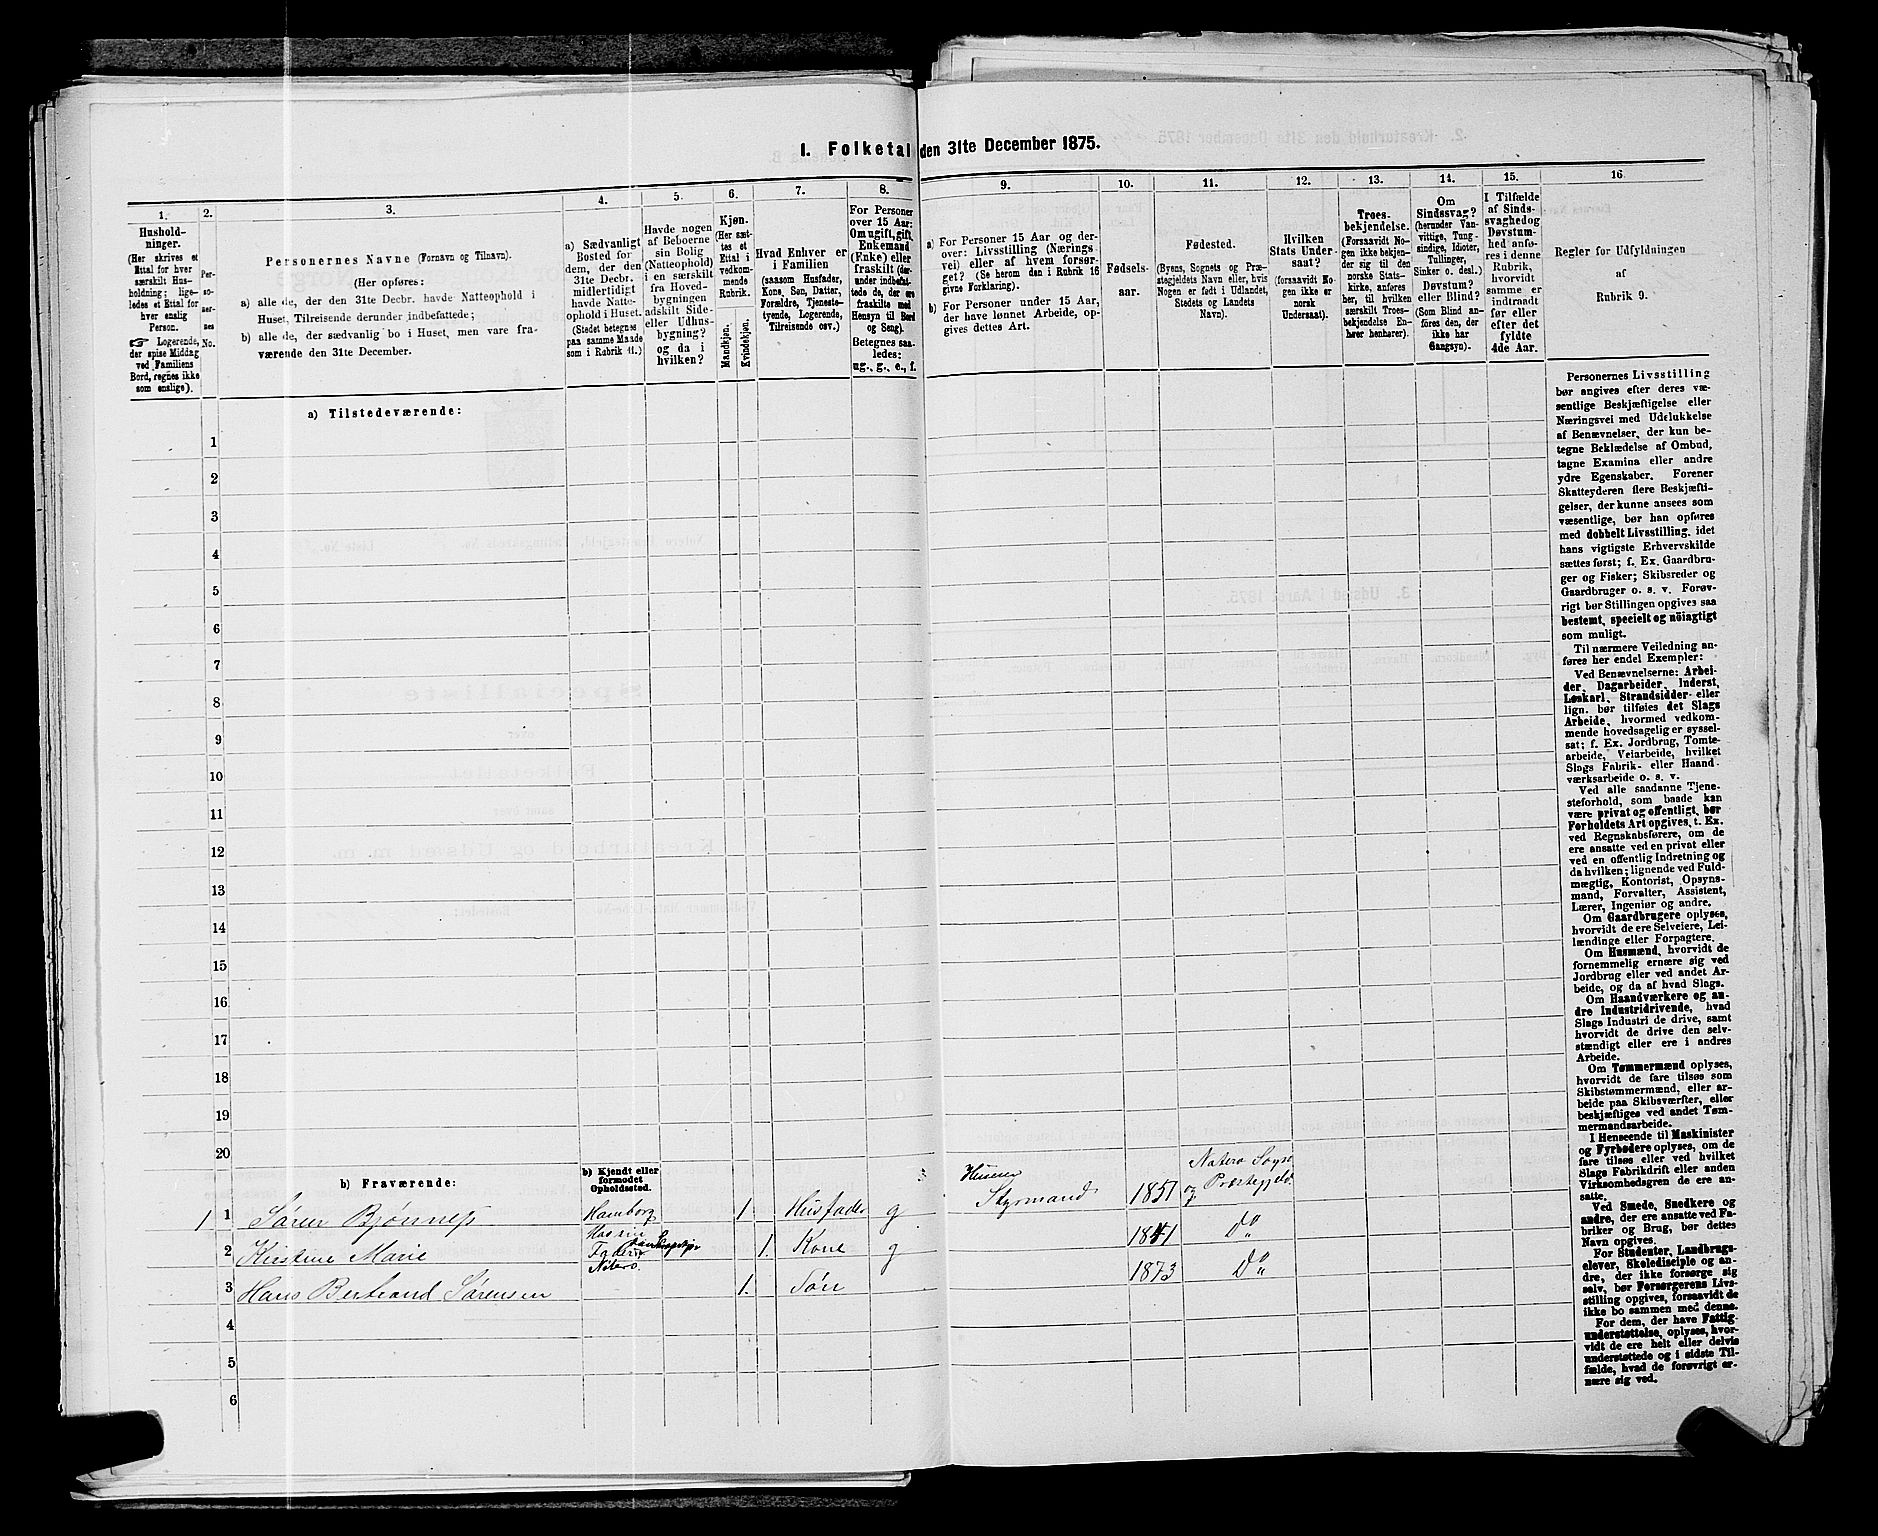 I. Folketal den 31te December 1875.
1.
Hushold-
ninger.
(Her skrives et
Ettal for hver
særskilt Hus-
holdning; lige-
ledes et Ettal for
hver enslig
Person.
☞ Logerende,
der spise Middag
ved Familiens
Bord, regnes ikke
som enslige).
2.
Per-
so-
ner-
nes
No.
3.
Personernes Navne (Fornavn og Tilnavn).
(Her opføres:
a) alle de, der den 31te Decbr. havde Natteophold i
Huset, Tilreisende derunder indbefattede;
b) alle de, der sædvanlig bo i Huset, men vare fra-
værende den 31te December.
4.
a) Sædvanligt
Bosted for
dem, der den
31te Decbr.
midlertidigt
havde Natte-
ophold i Huset.
(Stedet betegnes
paa samme Maade
som i Rubrik 11.)
5.
Havde nogen
af Beboerne
sin Bolig
(Natteophold)
i en særskilt
fra Hoved-
bygningen
adskilt Side-
eller Udhus-
bygning?
og da i
hvilken?
6.
Kjøn.
(Her sæt-
tes et
Ettal i
vedkom-
mende
Rubrik.
Mandkjøn.
Kvindekjøn.
7.
Hvad Enhver er
i Familien
(saasom Husfader,
Kone, Søn, Datter,
Forældre, Tjeneste-
tyende, Logerende,
Tilreisende osv.)
8.
For Personer
over 15 Aar:
Om ugift, gift,
Enkemand
(Enke) eller
fraskilt (der-
under indbefat-
tede de, der ere
fraskilte med
Hensyn til Bord
og Seng).
Betegnes saa-
ledes:
ug., g., e., f.
9.
a) For Personer 15 Aar og der-
over: Livsstilling (Nærings-
vei) eller af hvem forsør-
get? (Se herom den i Rubrik 16
givne Forklaring).
b) For Personer under 15 Aar,
der have lønnet Arbeide, op-
gives dettes Art.
10.
Fødsels-
aar.
11.
Fødested.
(Byens, Sognets og Præ-
stegjeldets Navn eller, hvis
Nogen er født i Udlandet,
Stedets og Landets
Navn).
12.
Hvilken
Stats Under-
saat?
(forsaavidt No-
gen ikke er
norsk
Undersaat).
13.
Troes-
bekjendelse.
(Forsaavidt No-
gen ikke bekjen-
der sig til den
norske Stats-
kirke, anføres
her, til hvilken
særskilt Troes-
bekjendelse En-
hver henhører).
14.
Om
Sindssvag?
(herunder Van-
vittige, Tung-
sindige, Idioter,
Tullinger,
Sinker o. desl.)
Døvstum?
eller Blind?
(Som Blind an-
føres den, der
ikke har
Gangsyn).
15.
I Tilfælde
af Sinds-
svaghed og
Døvstum-
hed anfø-
res i denne
Rubrik,
hvorvidt
samme er
indtraadt
før eller
efter det
fyldte
4de Aar.
16
Regler for Udfyldningen
af
Rubrik 9.
Personernes Livsstilling
bør angives efter deres væ-
sentlige Beskjæftigelse eller
Næringsvei med Udelukkelse
af Benævnelser, der kun be-
tegne Beklædelse af Ombud,
tagne Examina eller andre
ydre Egenskaber. Forener
Skatteyderen flere Beskjæfti-
gelser, der kunne ansees som
væsentlige, bør han opføres
med dobbelt Livsstilling, idet
hans vigtigste Erhvervskilde
sættes først; f. Ex. Gaardbru-
ger og Fisker; Skibsreder og
Gaardbruger o. s. v. Forøv-
rigt bør Stillingen opgives saa
bestemt, specielt og nøiagtigt
som muligt.
Til nærmere Veiledning an-
føres her endel Exempler:
Ved Benævnelserne: Arbei-
der, Dagarbeider, Inderst,
Løskarl, Strandsidder eller
lign. bør tilføies det Slags
Arbeide, hvormed vedkom-
mende hovedsagelig er syssel-
sat; f. Ex. Jordbrug, Tomte-
arbeide, Veiarbeide, hvilket
Slags Fabrik- eller Haand-
værksarbeide o. s. v.
Ved alle saadanne Tjene-
steforhold, som baade kan
være privat og offentligt, bør
Forholdets Art opgives, t. Ex.
ved Regnskabsførere, om de
ere ansatte ved en privat eller
ved en offentlig Indretning og
da hvilken; lignende ved Fuld-
mægtig, Kontorist, Opsyns-
mand, Forvalter, Assistent,
Lærer, Ingeniør og andre.
Om Gaardbrugere oplyses,
hvorvidt de ere Selveiere, Lei-
lændinge eller Forpagtere.
Om Husmænd, hvorvidt de
fornemmelig ernære sig ved
Jordbrug eller ved andet Ar-
beide, og da af hvad Slags.
Om Haandværkere og an-
dre Industridrivende, hvad
Slags Industri de drive, samt
hvorvidt de drive den selv-
stændigt eller ere i andres
Arbeide.
Om Tømmermænd oplyses,
hvorvidt de fare tilsøs som
Skibstømmermænd, eller ar-
beide paa Skibsværfter, eller
beskjæftiges ved andet Tøm-
mermandsarbeide.
I Henseende til Maskinister
og Fyrbødere oplyses, om de
fare tilsøs eller ved hvilket
Slags Fabrikdrift eller anden
Virksomhedsgren de ere an-
satte.
Ved Smede, Snedkere og
andre, der ere ansatte ved Fa-
briker og Brug, bør dettes
Navn opgives.
For Studenter, Landbrugs-
elever, Skoledisciple og an-
dre, der ikke forsørge sig
selv, bør Forsørgerens Livs-
stilling opgives, forsaavidt de
ikke bo sammen med denne.
For dem, der have Fattig-
understøttelse, oplyses, hvor-
vidt de ere helt eller delvis
understøttede og i sidste Til-
fælde, hvad de forøvrigt er-
nære sig ved.
a) Tilstedeværende:
1
2
3
4
5
6
7
8
9
10
11
12
13
14
15
16
17
18
19
20
b) Fraværende:
b) Kjendt eller
formodet
Opholdssted.
1 1 Sørens Bjønnes Hamborg 1 Husfader g Styrmand 1851 Nøterø Sogn og Præstegjeld
2 Kirstine Marie Nøterø 1. Kone g 1841 Do
3 Hans Bertrand Sørensen 1. Søn 1873 Do
4
5
6